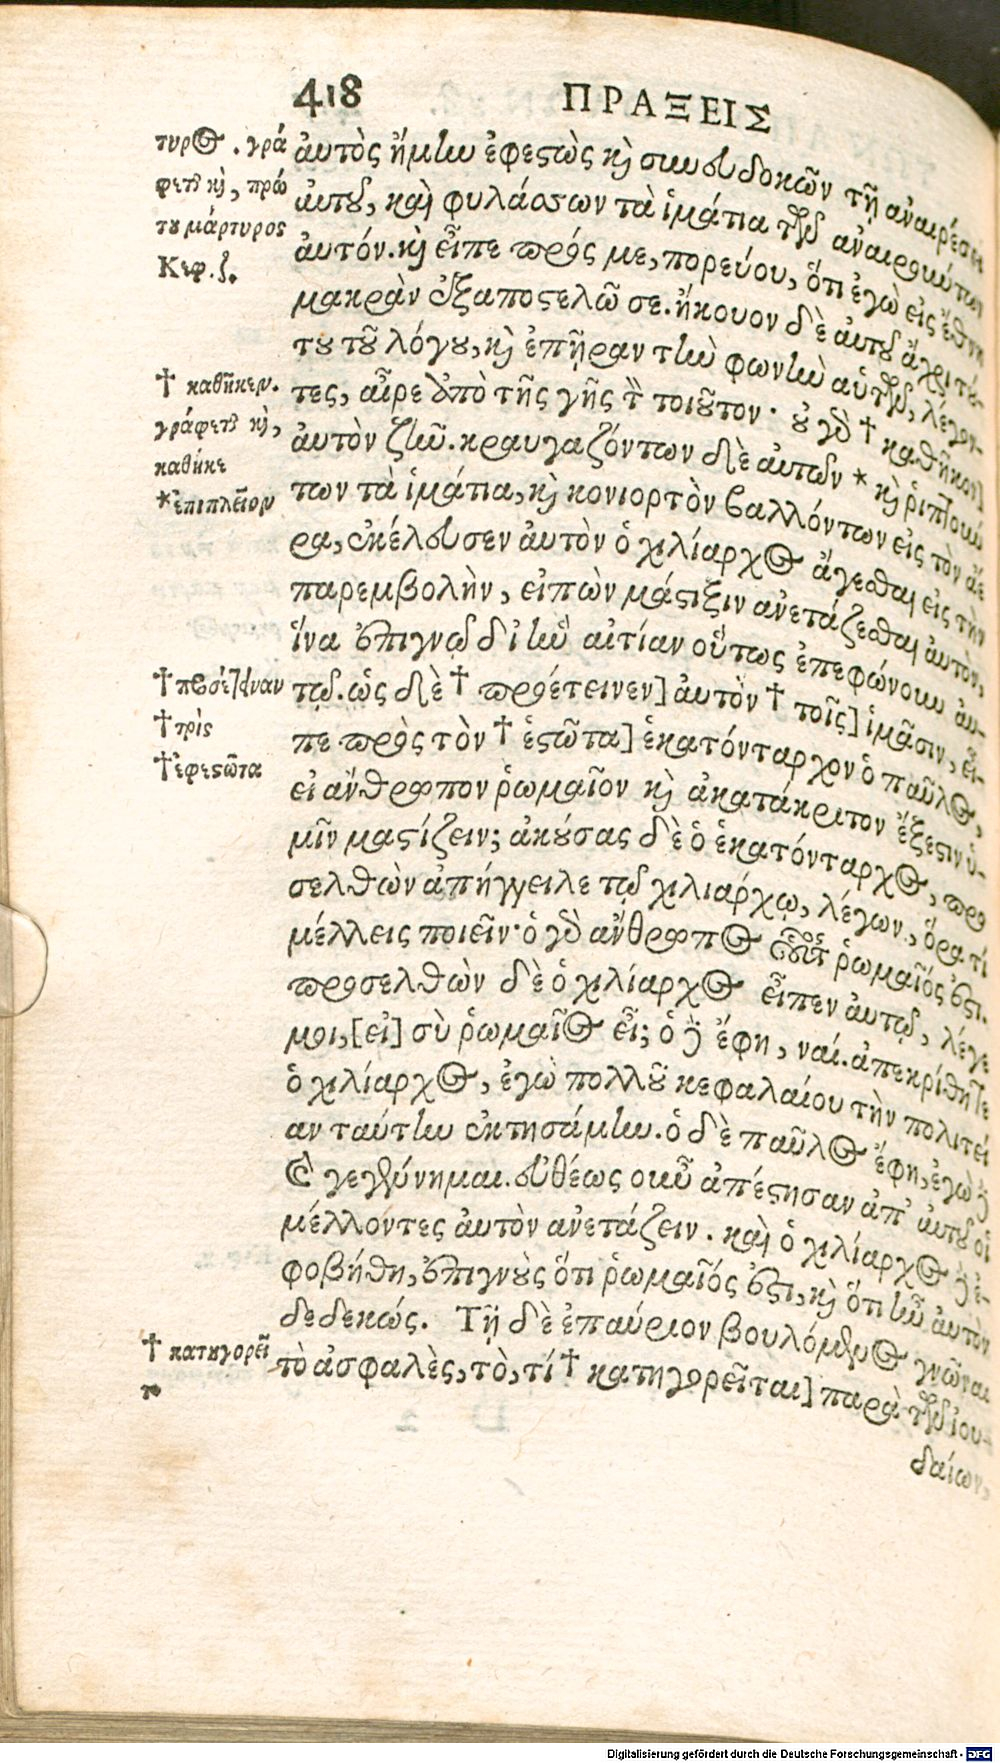 418 ΠΡΑΞΕΙΣ
τυρος . γρά
φεται καὶ, πρώ
του μάρτυρος
Κεφ. ζ.
† καθῆκεν.
γράφεται καὶ,
καθῆκε
*ἐπιπλεῖον
†προσέτειναν
†τρὶς
†ἐφεστῶτα
† κατηγορεῖ
το
ἀυτὸς ἤμην ἐφεστὼς καὶ συνευδοκῶν τῇ ἀναιρέσει
ἀυτοῦ, καὶ φυλάσσων τὰ ἱμάτια τῶν ἀναιρούντων
ἀυτόν. καὶ εἶπε πρός με, πορεύου, ὅτι ἐγὼ εἰς ἔθνη
μακρὰν ἐξαποστελῶ σε. ἤκουον δὲ ἀυτοῦ ἄχρι τού-
του τοῦ λόγου, καὶ ἐπῆραν τὴν φωνὴν αὐτῶν, λέγον-
τες, αἶρε ἀπὸ τῆς γῆς τὸν τοιοῦτον· οὐ γὰρ † καθῆκον]
ἀυτὸν ζῆν. κραυγαζόντων δὲ ἀυτῶν * καὶ ῥιπτούν
των τὰ ἱμάτια, καὶ κονιορτὸν βαλλόντων εἰς τὸν ἀέ
ρα, ἐκέλευσεν ἀυτὸν ὁ χιλίαρχος ἄγεσθαι εἰς τὴν
παρεμβολὴν, εἰπὼν μάστιξιν ἀνετάζεσθαι ἀυτὸν,
ἵνα ἐπιγνῷ δι' ἣν αἰτίαν οὕτως ἐπεφώνουν ἀυ-
τῷ. ὡς δὲ † προέτεινεν] ἀυτὸν † τοῖς] ἱμᾶσιν, εἶ-
πε πρὸς τὸν † ἑστῶτα] ἑκατόνταρχον ὁ παῦλος,
εἰ ἄνθρωπον ῥωμαῖον καὶ ἀκατάκριτον ἔξεστιν ὑ-
μῖν μαστίζειν; ἀκούσας δὲ ὁ ἑκατόνταρχος, προ
σελθὼν ἀπήγγειλε τῷ χιλιάρχῳ, λέγων, ὅρα τί
μέλλεις ποιεῖν· ὁ γὰρ ἄνθρωπος οὗτος ῥωμαῖός ἐστι.
προσελθὼν δὲ ὁ χιλίαρχος εἶπεν ἀυτῷ, λέγε
μοι, [εἰ] σὺ ῥωμαῖος εἶ; ὁ δὲ ἔφη, ναί. ἀπεκρίθη τε
ὁ χιλίαρχος, ἐγὼ πολλοῦ κεφαλαίου τὴν πολιτεί
αν ταύτην ἐκτησάμην. ὁ δὲ παῦλος ἔφη, ἐγὼ δὲ
καὶ γεγέννημαι. εὐθέως οὖν ἀπέστησαν ἀπ' ἀυτοῦ οἱ
μέλλοντες ἀυτὸν ἀνετάζειν. καὶ ὁ χιλίαρχος δὲ ἐ-
φοβήθη, ἐπιγνοὺς ὅτι ῥωμαῖός ἐστι, καὶ ὅτι ἦν ἀυτὸν
δεδεκώς. Τῇ δὲ ἐπαύριον βουλόμενος γνῶναι
τὸ ἀσφαλὲς, τὸ, τί † κατηγορεῖται] παρὰ τῶν ἰου-
δαίων,
Digitalisierung gefördert durch die Deutsche Forschungsgemeinschaft - DFG